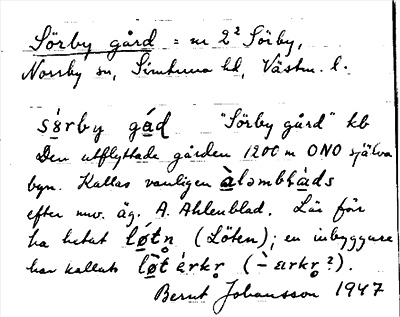 Sörby gård = m 2² Sörby,
Norrby sn, Simtuna hd, Västm. l.
sö̀rby gá̱d "Sörby gård" kb
Den utflyttade gården 1200 m ONO själva
byn. Kallas vanligen à̱ləmblà̱ds
efter nuv. äg. A. Ahlenblad. Lär för
ha hetat lǿtn̥ (Löten); en inbyggare
har kallats lø̀t érkr̥ (ˋ- ærkr̥?).
Bernt Johansson 1947